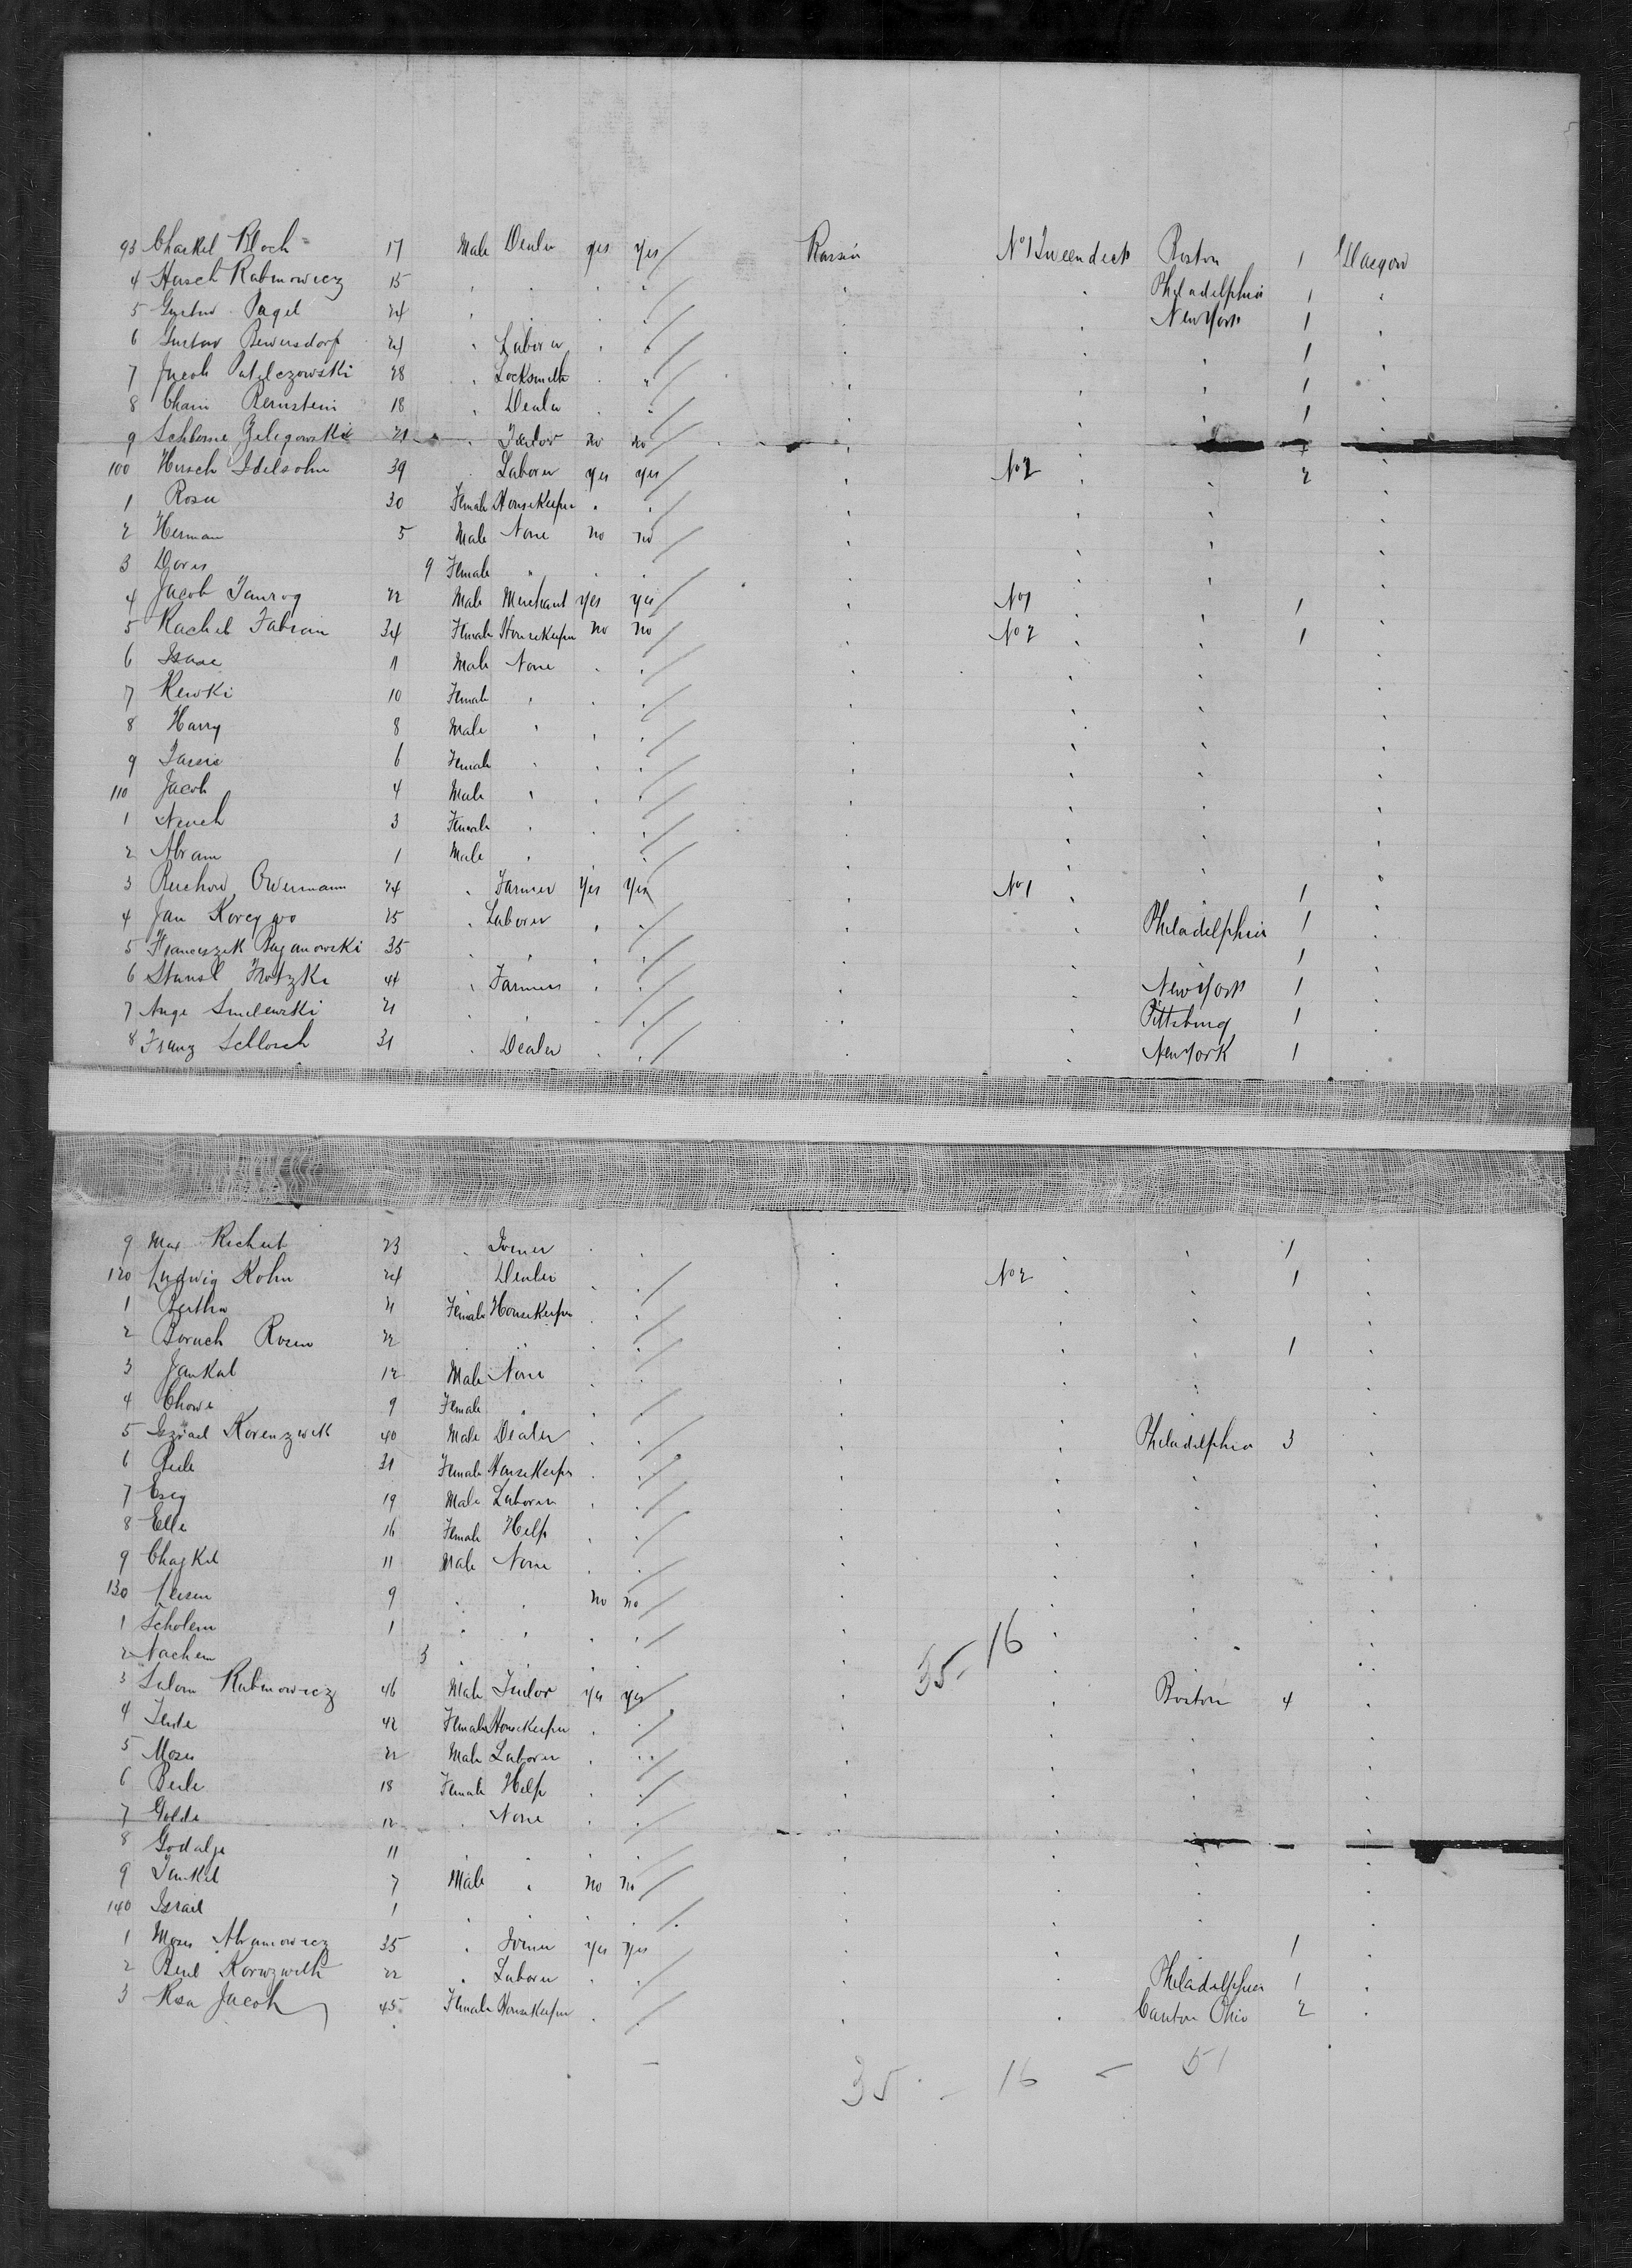 93 Chaskel Bloch 17 Male Dealer yes yes / Russia No 1 Tweendeck Boston 1 Glasgow
4 Hersch Rabinowicz 15 " " " " / " " Philadelphia 1 "
5 Gustav Pagel 24 " " " " / " " New York 1 "
6 Gustav Bewersdorf 24 " Laborer " " / " " " 1 "
7 Jacob 28 " Locksmith " " / " " " 1 "
8 Chaim Bernstein 18 " Dealer " " / " " " 1 "
9 Schlome Zeligowski 21 " Tailor no no / " " " 1 "
100 Hersch Idelsohn 39 " Laborer yes yes / " No 2 " " 2 "
1 Rosa 30 Female Housekeeper " " / " " " "
2 Herman 5 Male None no no / " " " "
3 Doris 9 Female " " " " " " "
4 Jacob Taurog 22 Male Merchant yes yes / " No 1 " " 1 "
5 Rachel Fabian 34 Female Housekeeper no no / " No 2 " " 1 "
6 Isaac 11 Male None " " / " " " "
7 Rewki 10 Female " " " / " " " "
8 Harry 8 Male " " " / " " " "
9 6 Female " " " / " " " "
110 Jacob 4 Male " " " / " " " "
1 3 Female " " " / " " " "
2 Abram 1 Male " " " / " " " "
3 24 " Farmer yes yes " No 1 " " 1 "
4 Jan 25 " Laborer " " / " " Philadelphia 1 "
5 Franciszek 35 " " " " / " " " 1 "
6 44 " Farmer " " / " " New York 1 "
7 21 " " " " / " " Pittsburg 1 "
8 Franz Schlosch 31 " Dealer " " / " " New York 1 "
9 Max 23 " Joiner " " " " " 1 "
120 Ludwig Kohn 24 Dealer " " / " No 2 " " 1 "
1 Bertha 21 Female Housekeeper " " / " " " "
2 Boruch Rosen 22 " " " " / " " " 1 "
3 Jankel 12 Male None " " " " " "
4 Chowe 9 Female " " " / " " " "
5 Izrael Korenzweik 40 Male Dealer " " / " " Philadelphia 3 "
6 31 Female Housekeeper " " / " " " "
7 19 Male Laborer " " / " " " "
8 Elle 16 Female Help " " / " " " "
9 Chaskel 11 Male None " " / " " " "
130 Leisen 9 " " no no / " " " "
1 Scholem 1 " " " " / " " " "
35 - 16
2 Nachem 3 " " " " " " " "
3 Salom Rabinowicz 46 Male Tailor yes yes / " " Boston 4 "
4 42 Female Housekeeper " " / " " " "
5 Moses 22 Male Laborer " " / " " " "
6 Beile 18 Female Help " " / " " " "
7 Golde 12 " None " " / " " " "
8 Godalje 11 " " " " / " " " "
9 Jankel 7 Male " no no / " " " "
140 Israel 1 " " " " / " " " "
1 Moses Abramowicz 35 " Joiner yes yes " " " 1 "
2 22 " Laborer " " / " " Philadelphia 1 "
3 Rosa Jacob 45 Female Housekeeper " " / " " Canton Ohio 2 "
35 - 16 - 51